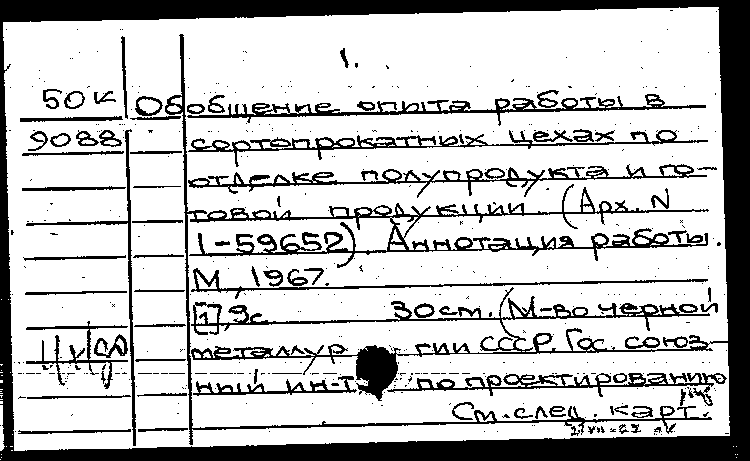 1.
50К Обобщение опыта работы в
9088 сортопрокатных цехах по
отделке полупродукта и го-
товой продукции (Арх. N
1-59652). Аннотация работы.
М, 1967.
[1], 9с 30 ст. (М-во черной
металлургии СССР. Гос. союз-
ный ин-т по проектированию
См. след. карт.